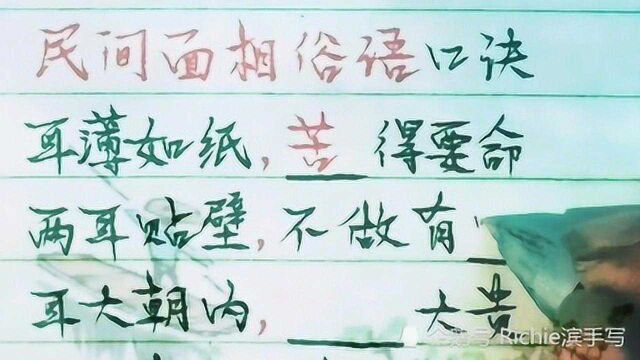 民间面相俗语口诀
耳薄如纸，苦 得要命
两耳贴壁，不做有
耳大朝内，＿＿大贵
Richie滨手写